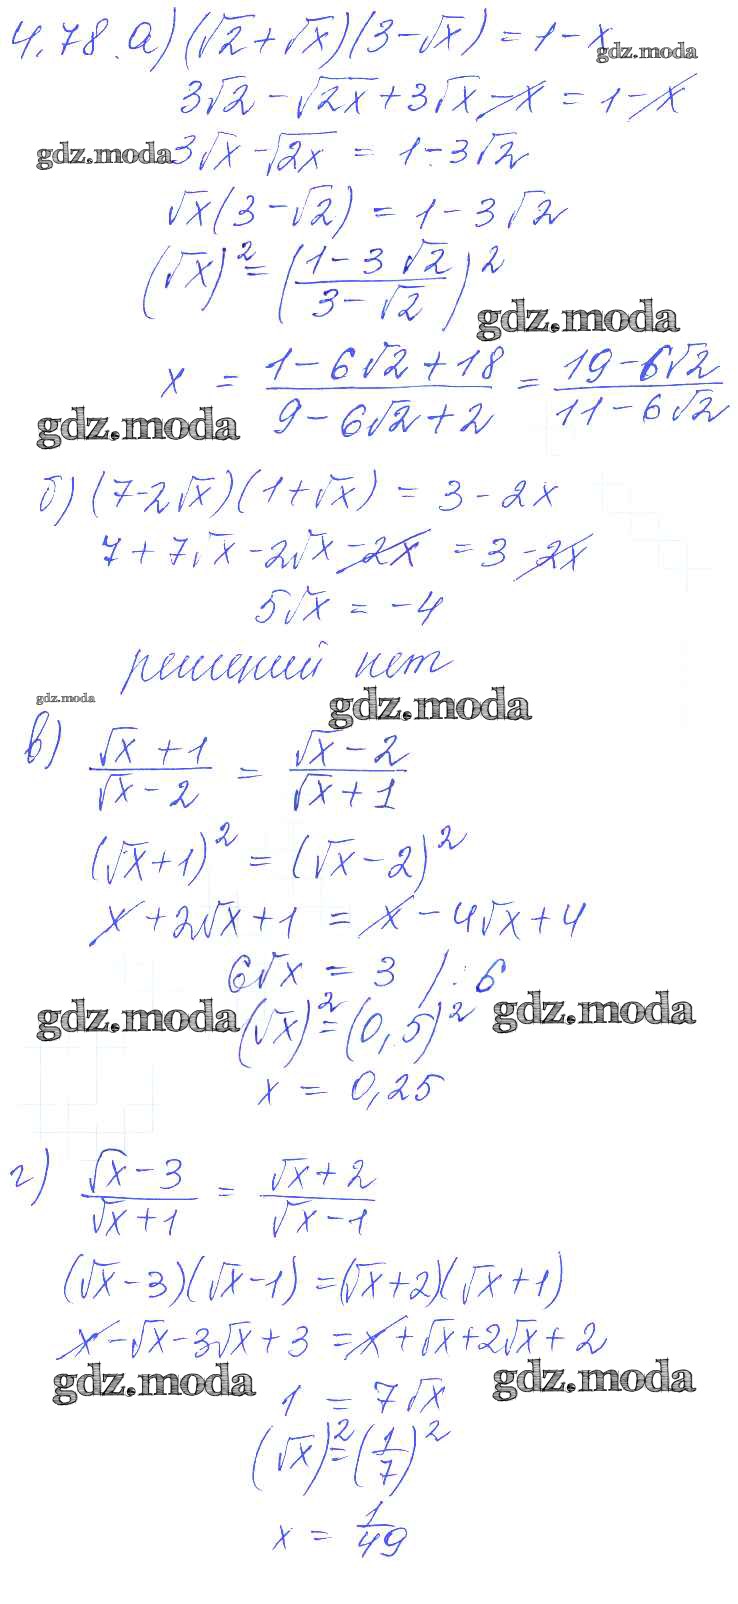 4.78. а) (√2 + √x)(3 - √x) = 1 - x
gdz.moda
3√2 - √2x + 3√x - x = 1 - x
gdz.moda 3√x - √2x = 1 - 3√2
√x(3 - √2) = 1 - 3√2
(√x)² = ((1 - 3√2)/(3 - √2))²
gdz.moda
x = (1 - 6√2 + 18)/(9 - 6√2 + 2) = (19 - 6√2)/(11 - 6√2)
gdz.moda
б) (7 - 2√x)(1 + √x) = 3 - 2x
7 + 7√x - 2√x - 2x = 3 - 2x
5√x = -4
решений нет
gdz.moda
gdz.moda
в) (√x + 1)/(√x - 2) = (√x - 2)/(√x + 1)
(√x + 1)² = (√x - 2)²
x + 2√x + 1 = x - 4√x + 4
6√x = 3 / : 6
gdz.moda (√x)² = (0,5)² gdz.moda
x = 0,25
г) (√x - 3)/(√x + 1) = (√x + 2)/(√x - 1)
(√x - 3)(√x - 1) = (√x + 2)(√x + 1)
x - √x - 3√x + 3 = x + √x + 2√x + 2
gdz.moda 1 = 7√x gdz.moda
(√x)² = (1/7)²
x = 1/49